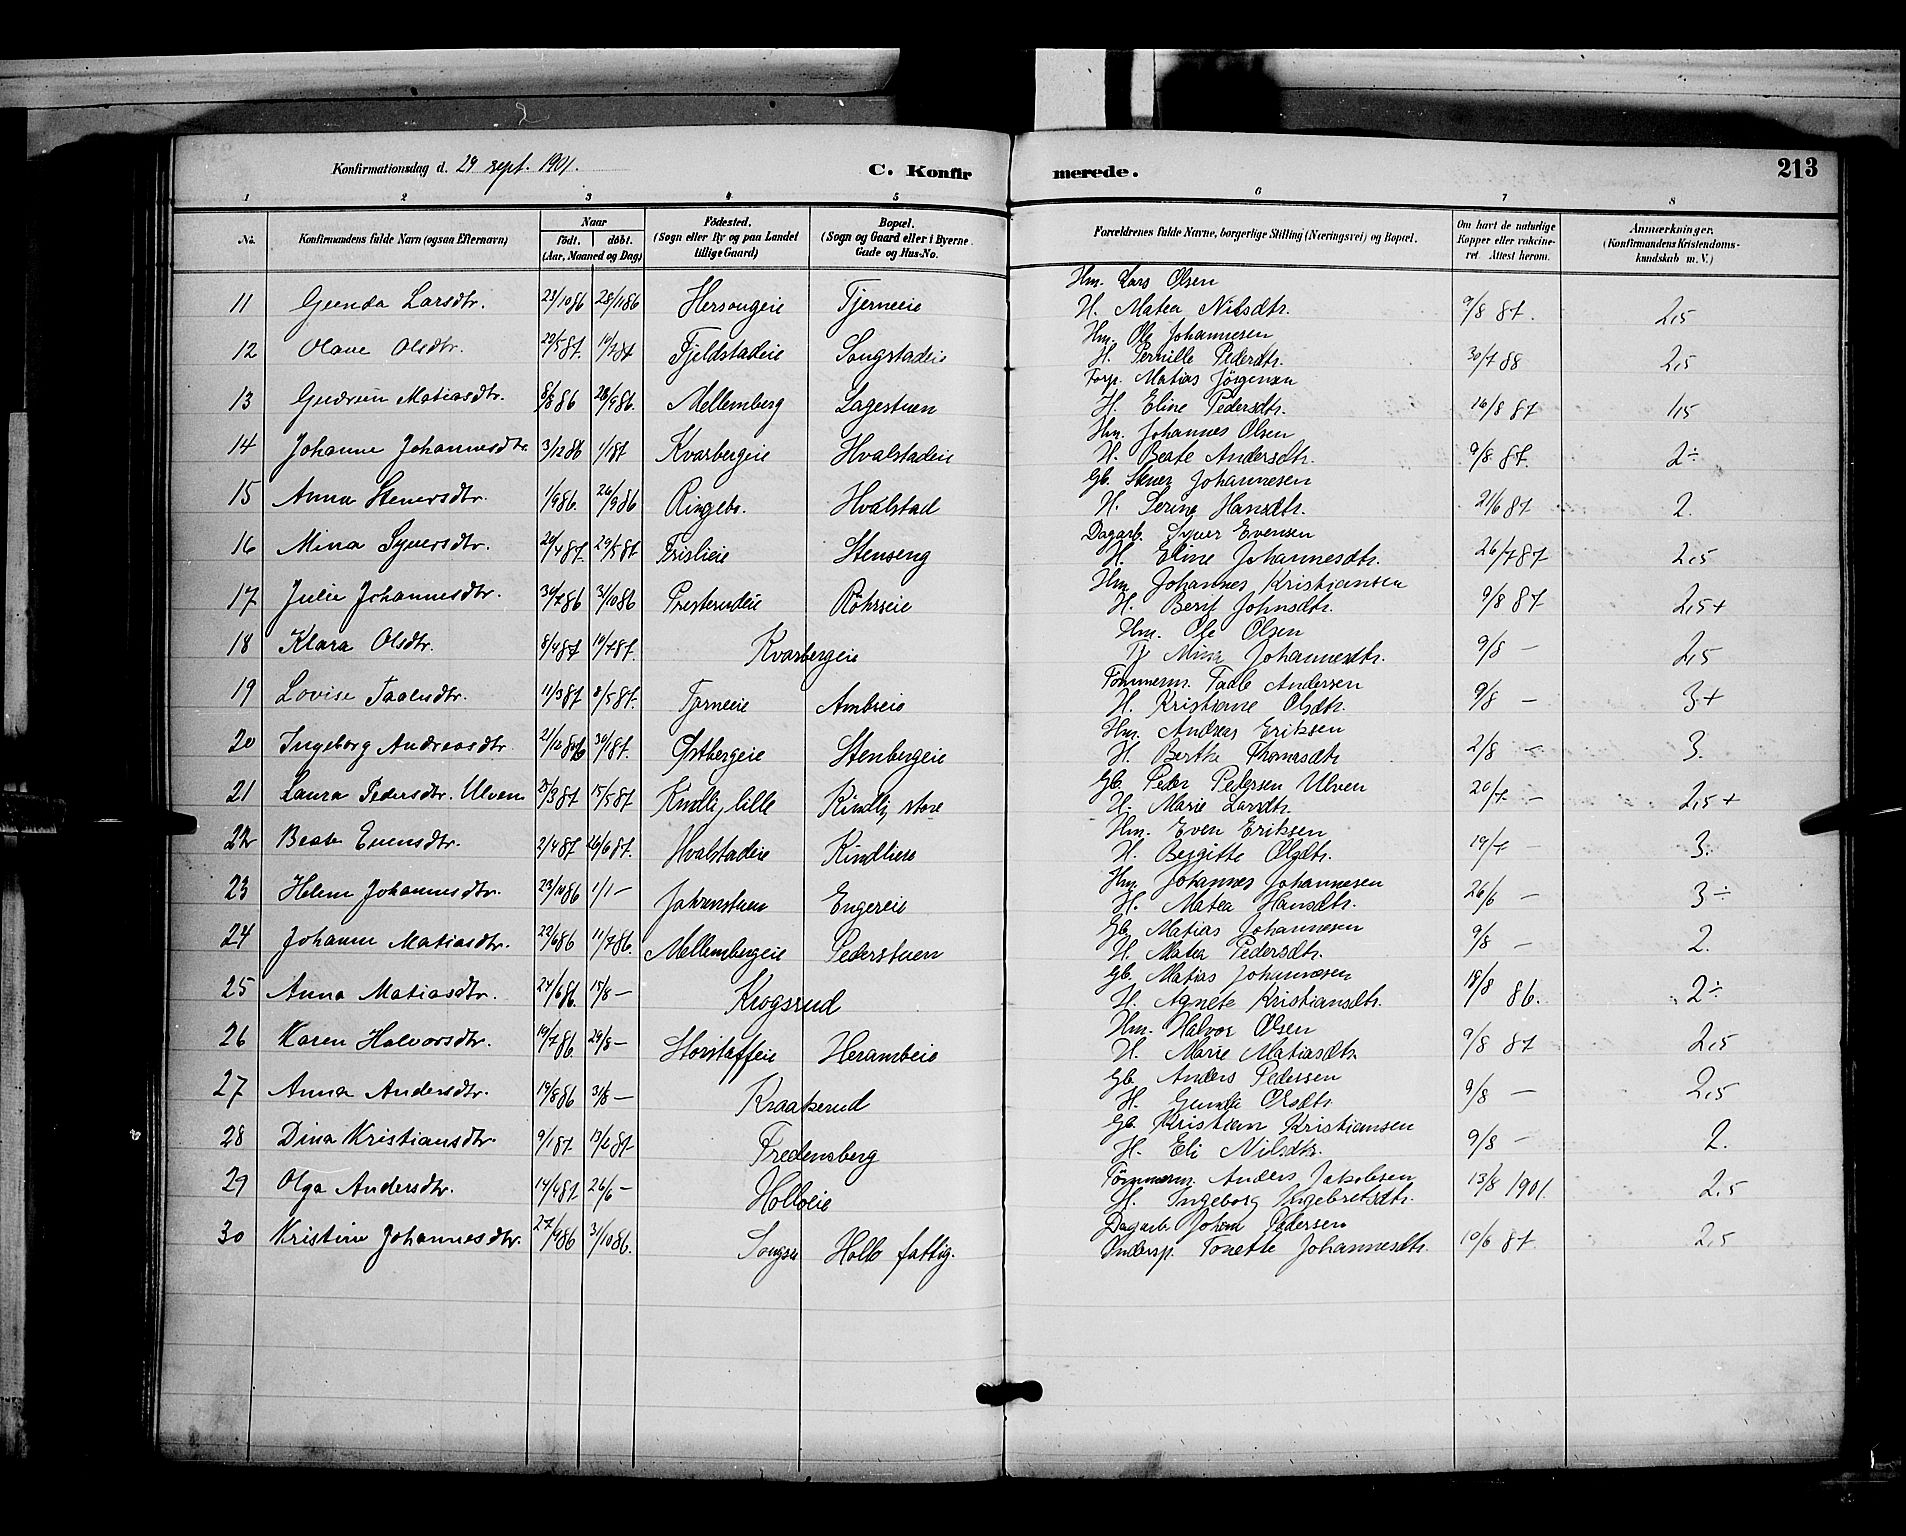 Konfirmationsdag d. 29 sept. 1901.
C. Konfirmerede.
213
1 2 3 4 5 6 7 8
No.
Konfirmandens fulde Navn (ogsaa Efternavn)
Naar
födt. döbt.
(Aar, Maaned og Dag)
Födested.
(Sogn eller By og paa Landet
tillige Gaard)
Bopæl.
(Sogn og Gaard eller i Byerne
Gade og Hus-No.
Forældrenes fulde Navne, borgerlige Stilling (Næringsvei) og Bopæl.
Om havt de naturlige
Kopper eller vakcine-
ret. Attest herom.
Anmærkninger.
(Konfirmandens Kristendoms-
kundskab m. V.)
Hm. Lars Olsen
11 Gunda Larsdtr. 23/10 86 28/11 86 Hersougeie Tjerneie H. Matea Nilsdtr. 9/8 87. 2,5
Hm. Ole Johannesen
12 Olave Olsdtr. 29/5 87. 10/7 87 Fjeldstadeie Songstadeie H. Pernille Pedersdtr. 30/7 88 2,5
Forp. Matias Jörgensen
13 Gudrun Matiasdtr. 8/8 86 26/9 86. Mellemberg Lagestuen H. Eline Pedersdtr. 16/8 87 1,5
Hm. Johannes Olsen
14 Johanne Johannesdtr. 3/12 86 1/1 87 Kvarbergeie Hvalstadeie H. Beate Andersdtr. 9/8 87. 2÷
Gb. Stener Johannesen
15 Anna Stenersdtr. 1/9 86. 26/9 86 Ringebo. Hvalstad H. Serine Hansdtr. 21/6 87 2.
Dagarb. Syver Evensen
16 Mina Syversdtr. 20/4 87. 29/5 87. Frislieie Stenseng H. Eline Johannesdtr. 26/7 87 2,5
Hm. Johannes Kristiansen
17 Julie Johannesdtr. 30/7 86 3/10 86 Presterudeie Röhneie H. Berit Johnsdtr. 9/8 87 2,5+
Hm. Ole Olsen
18 Klara Olsdtr. 8/4 87 10/7 87. Kvarbergeie Tj Mina Johannesdtr. 9/8 — 2,5
Tömmerm. Taale Andersen
19 Lovise Taalesdtr. 11/3 87 8/5 87. Tjerneeie Ambreie H. Kristiane Olsdtr. 9/8 — 3+
Hm. Andreas Eriksen
20 Ingeborg Andreasdtr. 21/10 86 30/1 87. Østbergeie Stenbergeie H. Berthe Thomasdtr 2/8 — 3.
Gb. Peder Pedersen Ulven
21 Laura Pedersdtr. Ulven 31/3 87 15/5 87 Kindli, lille Kindli, store H. Marie Larsdtr. 20/7 — 2,5+
Hm. Even Eriksen
22 Beate Evensdtr. 2/4 87 26/6 87. Hvalstadeie Kindlieie H. Bergitte Olsdtr. 19/7 — 3.
Hm. Johannes Johannesen
23 Helene Johannesdtr. 23/10 86 1/1 — Jahrenstuen Engereie H. Matea Hansdtr. 26/6 — 3÷
Gb. Matias Johannesen
24 Johanne Matiasdtr. 22/6 86 11/7 86. Mellembergeie Pederstuen H. Matea Pedersdtr. 9/8 — 2.
Gb. Matias Johannesen
25 Anna Matiasdtr. 24/6 86. 15/8 — Krogsrud H. Agnete Kristiansdtr. 18/8 86. 2÷
Hm. Halvor Olsen
26 Karen Halvorsdtr. 19/7 86. 29/8 — Storstaffeie Herambeie H. Marie Matiasdtr. 9/8 87 2,5
Gb. Anders Pedersen
27 Anna Andersdtr. 19/8 86 31/8 — Kraakerud H. Gunda Olsdtr. 9/8 — 2,5
Gb. Kristian Kristiansen
28 Dina Kristiansdtr. 9/1 87. 13/2 87. Fredensberg H. Eli Nilsdtr. 9/8 — 2.
Tömmerm. Anders Jakobsen
29 Olga Andersdtr. 14/4 87 26/6 — Holloeie H. Ingeborg Ingebretsdtr. 13/8 1901. 2,5
Dagarb. Johan Pedersen
30 Kristine Johannesdtr. 27/9 86 31/10 86. Songsu Hollo fattig. Indersp. Tonette Johannesdtr. 10/6 87. 2,5